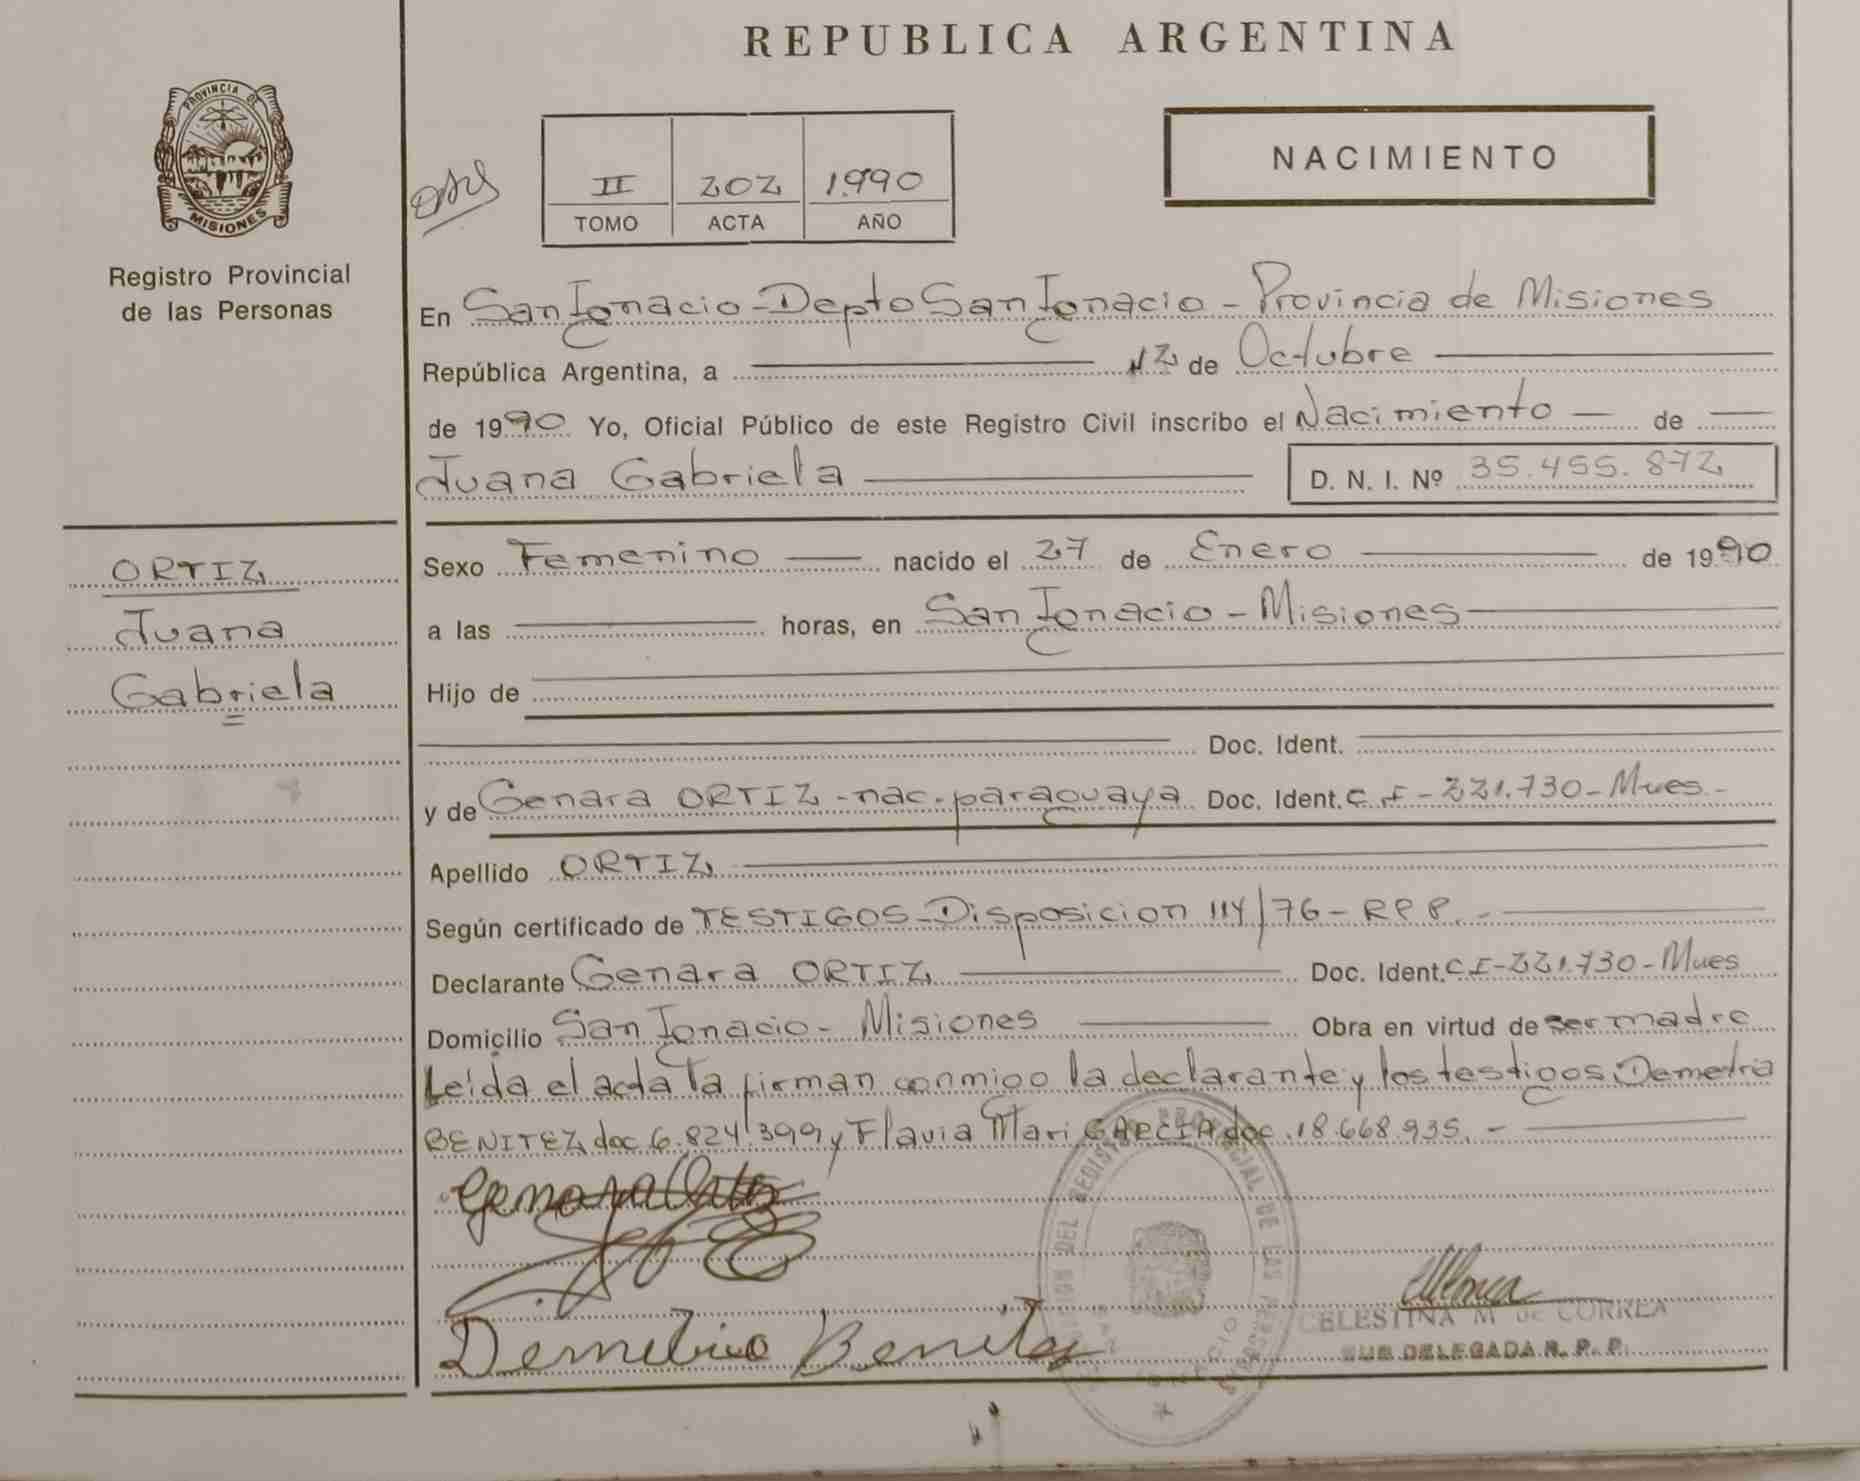 REPUBLICA ARGENTINA
PROVINCIA DE
MISIONES
Registro Provincial
de las Personas
II 202 1.990
TOMO ACTA AÑO
NACIMIENTO
En San Ignacio - Depto San Ignacio - Provincia de Misiones
República Argentina, a 12 de Octubre
de 1990 Yo, Oficial Público de este Registro Civil inscribo el Nacimiento — de —
Juana Gabriela
D. N. I. Nº 35.455.872
ORTIZ
Juana
Gabriela
Sexo Femenino nacido el 27 de Enero de 1990
a las horas, en San Ignacio - Misiones
Hijo de
Doc. Ident.
y de Genara ORTIZ - nac. paraguaya Doc. Ident. C I - 221.730 - Mnes -
Apellido ORTIZ
Según certificado de TESTIGOS - Disposicion 114/76 - RPP. -
Declarante Genara ORTIZ Doc. Ident. C I - 221.730 - Mnes
Domicilio San Ignacio - Misiones Obra en virtud de ser madre
Leída el acta la firman conmigo la declarante y los testigos Demetria
BENITEZ doc 6.824.399 y Flavia Mari GARCIA doc. 18.668.935. -
Genara Ortiz
Demetria Benitez
CELESTINA M de CORREA
SUB DELEGADA R. P. P.
DEL REGISTRO PROVINCIAL DE LAS PERSONAS